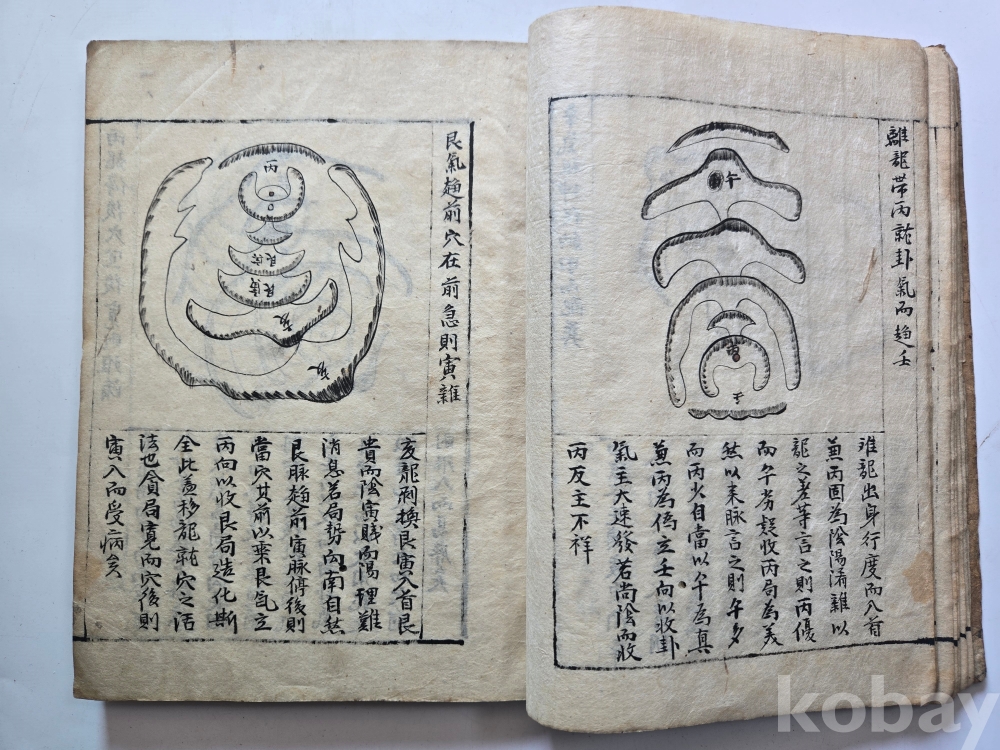 離龍帶丙就卦氣而趍壬
午
壬
離龍出身行度而入首
兼丙固為陰陽淆雜以
龍之差等言之則丙優
而午劣疑收丙局為美
然以来脉言之則午多
而丙少自當以午為真
兼丙為僞立壬向以收卦
氣主大速發若尚陰而收
丙反主不祥
艮氣趍前穴在前急則寅雜
丙
艮寅
艮寅
亥
亥
亥龍剥換艮寅入首艮
貴而陰寅賤而陽理難
消息若局勢向南自然
艮脉趍前寅脉停後則
當穴其前以乘艮氣立
丙向以收艮局造化斯
全此盖移龍就穴之活
法也貪局寬而穴後則
寅入而受病矣
kobay